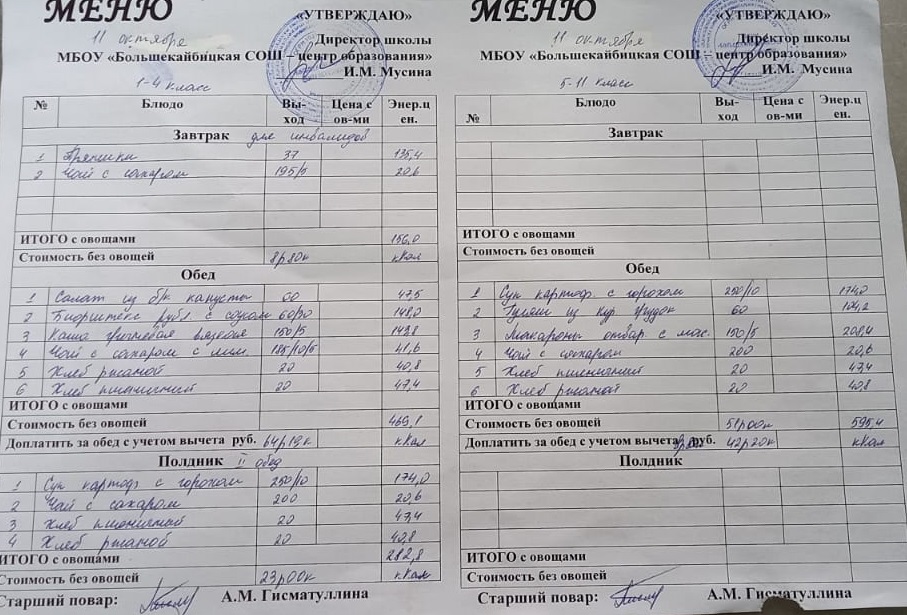 МЕНЮ
«УТВЕРЖДАЮ»
11 октября
Директор школы
МБОУ «Большекайбицкая СОШ – центр образования»
И.М. Мусина
1-4 класс
№ Блюдо Вы-ход Цена с ов-ми Энер.ц ен.
Завтрак для инвалидов
1 Пряники 37 135,4
2 Чай с сахаром 195/5 20,6
ИТОГО с овощами 156,0
Стоимость без овощей 8р20к кКал
Обед
1 Салат из б/к капусты 60 47,5
2 Бифштекс рубл. с соусом 60/30 148,0
3 Каша гречневая вязкая 150/5 143,8
4 Чай с сахаром с лим. 185/10/5 41,6
5 Хлеб ржаной 20 40,8
6 Хлеб пшеничный 20 47,4
ИТОГО с овощами
Стоимость без овощей 469,1
Доплатить за обед с учетом вычета руб. 64р19к кКал
Полдник II обед
1 Суп картоф с горохом 250/10 174,0
2 Чай с сахаром 200 20,6
3 Хлеб пшеничный 20 47,4
4 Хлеб ржаной 20 40,8
ИТОГО с овощами 282,8
Стоимость без овощей 23р00к кКал
Старший повар: А.М. Гисматуллина
МЕНЮ
«УТВЕРЖДАЮ»
11 октября
Директор школы
МБОУ «Большекайбицкая СОШ – центр образования»
И.М. Мусина
5-11 класс
№ Блюдо Вы-ход Цена с ов-ми Энер.ц ен.
Завтрак
ИТОГО с овощами
Стоимость без овощей
Обед
1 Суп картоф. с горохом 250/10 174,0
2 Гуляш из кур грудок 60 104,2
3 Макароны отвар. с мас. 150/5 208,4
4 Чай с сахаром 200 20,6
5 Хлеб пшеничный 20 47,4
6 Хлеб ржаной 20 40,8
ИТОГО с овощами
Стоимость без овощей 51р00к 595,4
Доплатить за обед с учетом вычета руб. 42р20к кКал
Полдник
ИТОГО с овощами
Стоимость без овощей
Старший повар: А.М. Гисматуллина